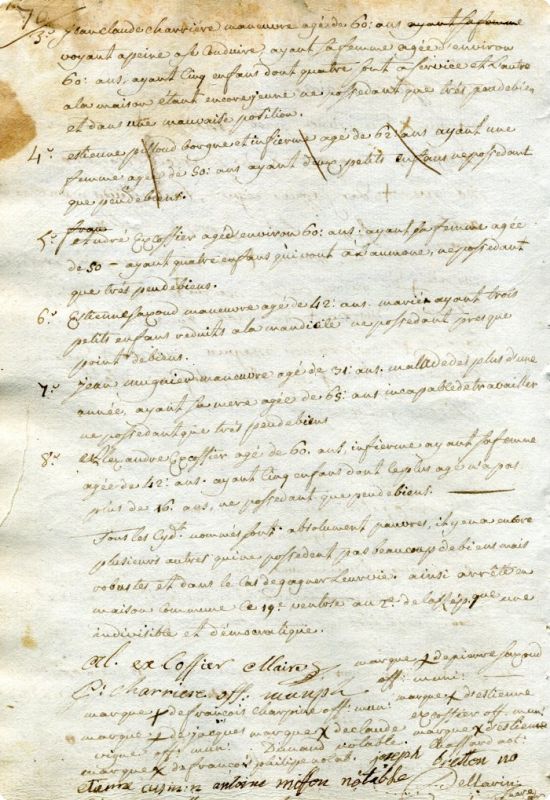 3.° jean claude charriére manœuvre agé de 60: ans ayant sa femme
voyant apeine a se Conduire, ayant sa femme agée d'environ
60: ans, ayant Cinq enfans dont quatre sont a service et l'autre
a la maison etant encore jeune ne possedant que trés peu de bien,
et dans une mauvaise position.
4.° estienne borgne et infierme agé de 62 ans ayant une
femme agée de 50: ans ayant deux petits enfans ne possedant
que peu de bient.
5.° andré Excoffier agé d'environ 60: ans: ayant sa femme agée
de 50 - ayant quatre enfans qui vont a l'aumone, ne possedant
que trés peu de biens.
6.° Estienne manœuvre agé de 42: ans. marié ayant trois
petits enfans reduits a la mandicité ne possedant presque
point de biens.
7.° Jean mugnier manœuvre agé de 31: ans. mallade des plus d'une
année, ayant sa mere agée de 65: ans incapable de travailler
ne possedant que trés peu de biens
8.° allexandre Excoffier agé de 60. ans, infierme ayant sa femme
agée de 42: ans. ayant Cinq enfans dont le plus agé n'a pas
plus de 16. ans, ne possedant que peu de biens.
Tous les Cyd.t nommés sont absolument pauvres, il y en a encore
plusieurs autres qui ne possedent pas beaucoup de biens mais
robustes et dans le Cas de gagner Leur vie. ainsi arrêté en
maison commune Ce 19.e ventose an 2.e de la Rép.que une
indivisible et démocratique.
al. exCoffier Maire marque + de pierre
C. Charriere off. munph off: muni:
marque + de françois charpine off: mun: marque + d'estienne
marque + de jacques marque x de claude excoffier off: mun:
vigne off: mun: notable. marque x d'estienne
marque x de françois philipe notab. joseph no
antoine miffon notable Demarin